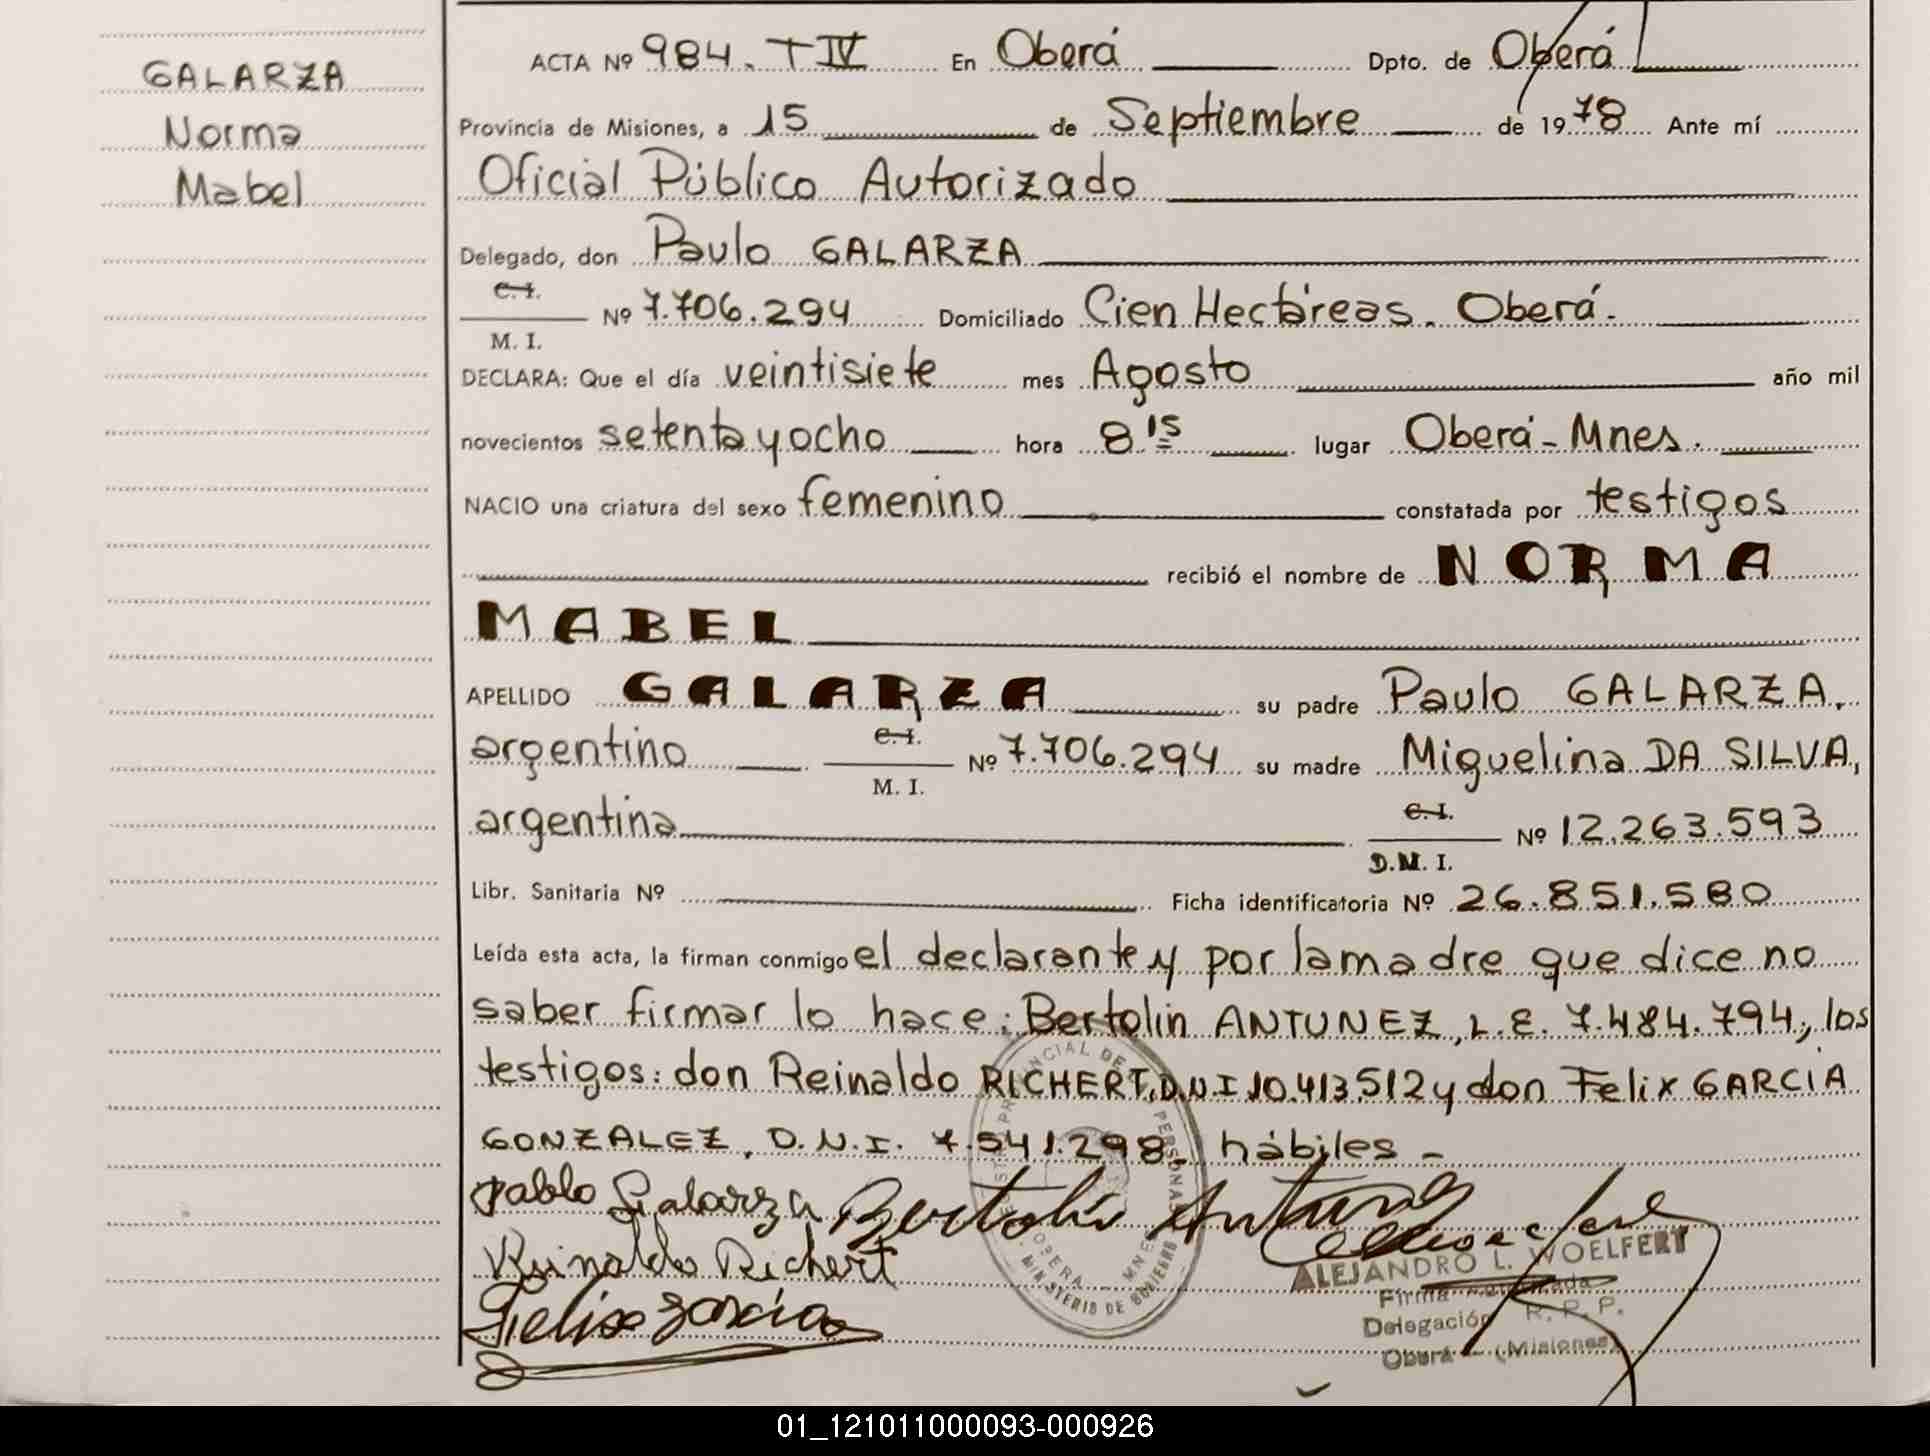 GALARZA
Norma
Mabel
ACTA Nº 984. T IV En Oberá Dpto. de Oberá
Provincia de Misiones, a 15 de Septiembre de 1978 Ante mí
Oficial Público Autorizado
Delegado, don Paulo GALARZA
C. I.
M. I.
Nº 7.706.294 Domiciliado Cien Hectáreas. Oberá.
DECLARA: Que el día veintisiete mes Agosto año mil
novecientos setenta y ocho hora 8 15 lugar Oberá - Mnes.
NACIO una criatura del sexo femenino constatada por testigos
recibió el nombre de NORMA
MABEL
APELLIDO GALARZA su padre Paulo GALARZA,
argentino C. I. M. I. Nº 7.706.294 su madre Miguelina DA SILVA,
argentina C. I. D.N. I. Nº 12.263.593
Libr. Sanitaria Nº Ficha identificatoria Nº 26.851.580
Leída esta acta, la firman conmigo el declarante y por la madre que dice no
saber firmar lo hace: Bertolin ANTUNEZ, L.E. 7.484.794, los
testigos: don Reinaldo RICHERT, D.N.I 10.413.512 y don Felix GARCIA
GONZALEZ, D.N.I. 7.541.298. hábiles -
Pablo Galarza Bertolin Antunez
Reinaldo Richert
Felix Garcia
ALEJANDRO L. WOELFERT
Firma
Delegación R. P. P.
Oberá - (Misiones)
PROVINCIAL DE PERSONAS
OBERA MNES
MINISTERIO DE GOBIERNO
01_121011000093-000926